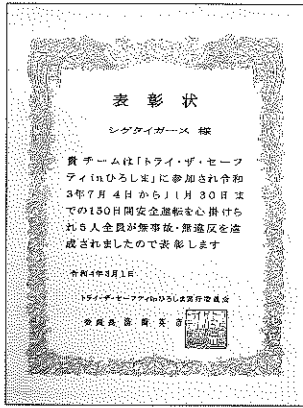 表彰状
シゲタイガース 様
貴チームは「トライ・ザ・セーフ
ティinひろしま」に参加され令和
3年7月4日から11月30日ま
での150日間安全運転を心掛けら
れ5人全員が無事故・無違反を達
成されましたので表彰します
令和4年3月1日
トライ・ザ・セーフティinひろしま実行委員会
委員長